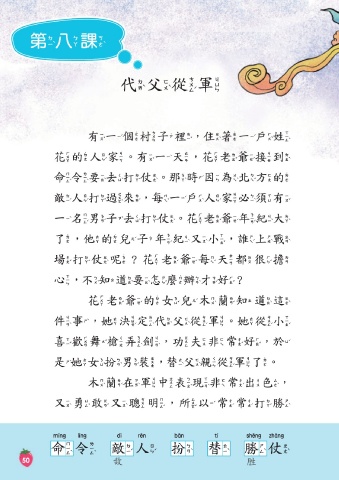 第八課
代父從軍
有一個村子裡，住著一戶姓
花的人家。有一天，花老爺接到
命令要去打仗。那時因為北方的
敵人打過來，每一戶人家必須有
一名男子去打仗。花老爺年紀大
了，他的兒子年紀又小，誰上戰
場打仗呢？花老爺每天都很擔
心，不知道要怎麼辦才好？
花老爺的女兒木蘭知道這
件事，她決定代父從軍。她從小
喜歡舞槍弄劍，功夫非常好，於
是她女扮男裝，替父親從軍了。
木蘭在軍中表現非常出色，
又勇敢又聰明，所以常常打勝
mìng lìng dí rén bàn tì shēng zhàng
命令 敵人 扮 替 勝仗
敌 胜
50